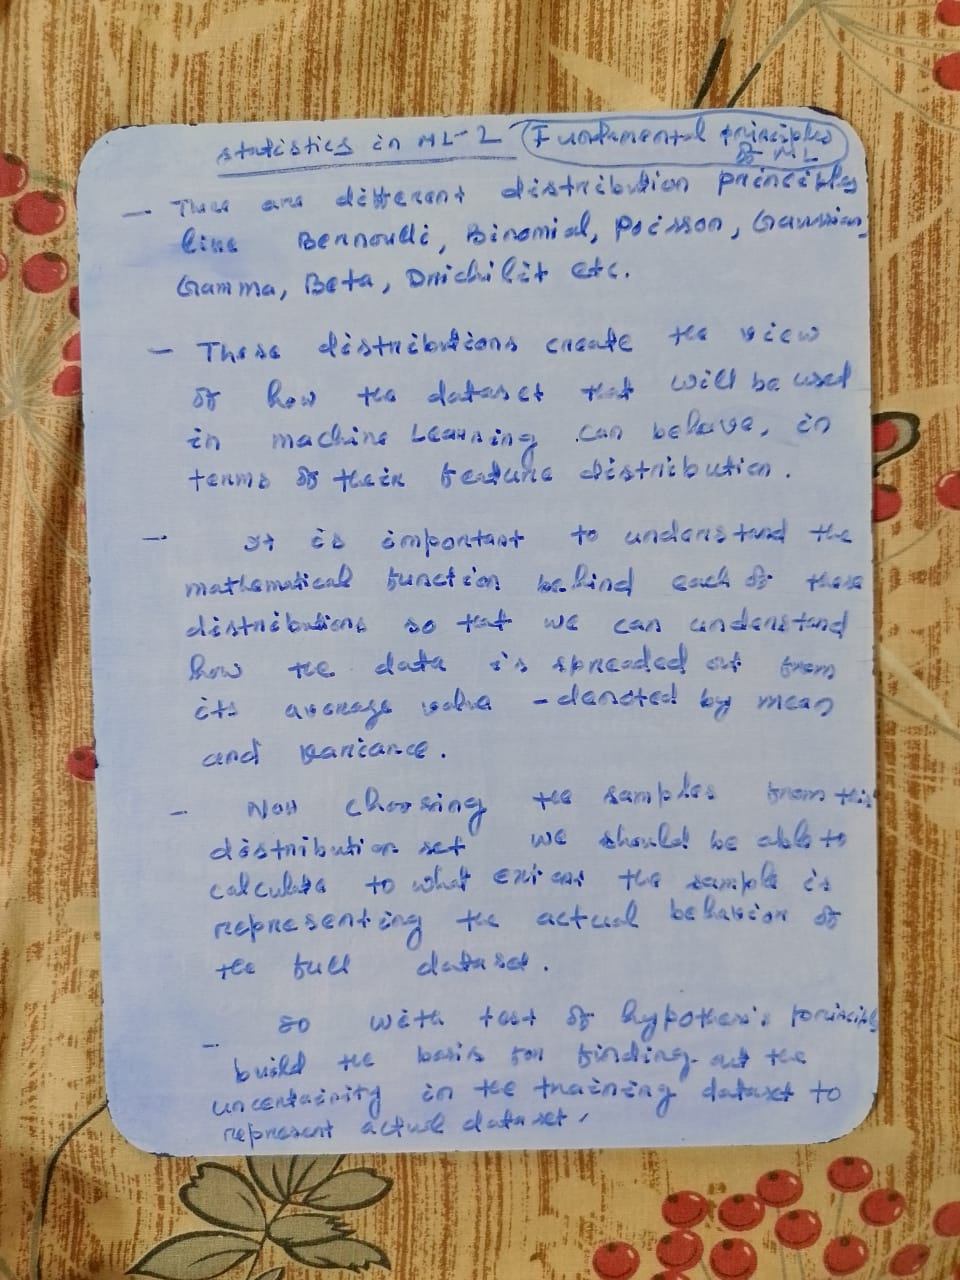 statistics in ML-2 Fundamental principles
of ML
- There are different distribution principles
like Bernoulli, Binomial, Poisson, Gaussian,
Gamma, Beta, Drichilit etc.
- These distributions create the view
of how the dataset that will be used
in machine Learning can behave, in
terms of their feature distribution.
- It is important to understand the
mathematical function behind each of these
distributions so that we can understand
how the data is spreaded out from
its average value - denoted by mean
and variance.
- Now choosing the samples from this
distribution set we should be able to
calculate to what extent the sample is
representing the actual behavior of
the full dataset.
- so with test of hypothesis principle
build the basis for finding out the
uncertainity in the training dataset to
represent actual dataset.